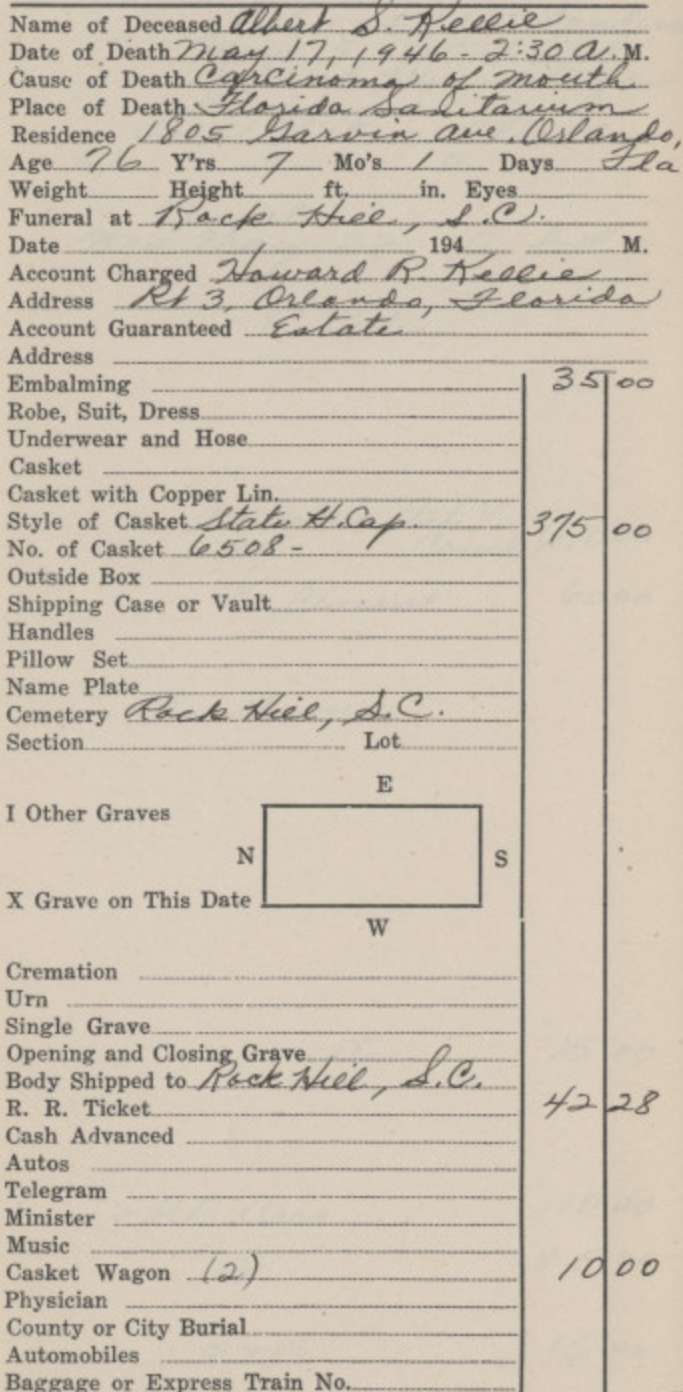 Name of Deceased Albert S. Kellie
Date of Death May 17, 1946 - 2:30 A. M.
Cause of Death Carcinoma of mouth
Place of Death Florida Sanitarium
Residence 1805 Garvin Ave. Orlando, Fla
Age 76 Y'rs 7 Mo's 1 Days
Weight Height ft. in. Eyes
Funeral at Rock Hill, S.C.
Date 194 M.
Account Charged Howard R. Kellie
Address Rt 3, Orlando, Florida
Account Guaranteed Estate
Address
Embalming 35 00
Robe, Suit, Dress
Underwear and Hose
Casket
Casket with Copper Lin.
Style of Casket State H. Cap. 375 00
No. of Casket 6508 -
Outside Box
Shipping Case or Vault
Handles
Pillow Set
Name Plate
Cemetery Rock Hill, S.C.
Section Lot
E
I Other Graves
N S
X Grave on This Date
W
Cremation
Urn
Single Grave
Opening and Closing Grave
Body Shipped to Rock Hill, S.C.
R. R. Ticket 42 28
Cash Advanced
Autos
Telegram
Minister
Music
Casket Wagon (2) 10 00
Physician
County or City Burial
Automobiles
Baggage or Express Train No.